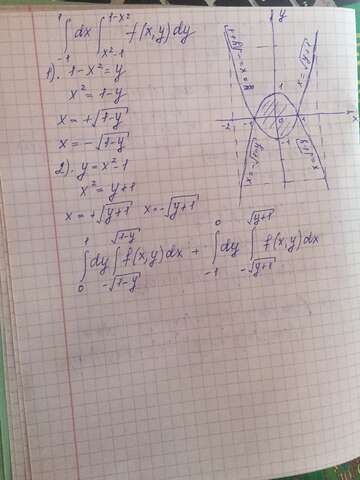 ∫₋₁¹ dx ∫_{x²-1}^{1-x²} f(x,y)dy
1). 1-x²=y
x²=1-y
x=+√(1-y)
x=-√(1-y)
2). y=x²-1
x²=y+1
x=+√(y+1) x=-√(y+1)
∫₀¹ dy ∫_{-√(1-y)}^{√(1-y)} f(x,y)dx + ∫₋₁⁰ dy ∫_{-√(y+1)}^{√(y+1)} f(x,y)dx
y
x=√(y+1)
1
-2 -1 0 1 2 x
-1
x=-√(1-y)